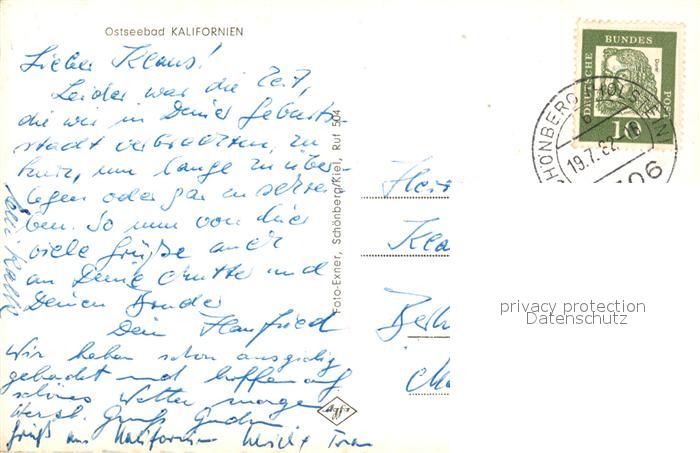 Ostseebad KALIFORNIEN
Lieber Klaus!
Leider war die Zeit,
die wir in Deiner Geburts-
stadt verbrachten, zu
kurz, um lange zu über-
legen oder gar zu schrei-
ben. So nun von hier
viele Grüße auch
an Deine Mutter und
Deinen Bruder
Dein Hanfried
Wir haben schon ausgiebig
gebadet und hoffen auf
schönes Wetter morgen
Herzl. Gruß Gudrun
Grüß aus Kalifornien
Foto-Exner, Schönberg/Kiel, Ruf 504
Agfa
DEUTSCHE BUNDES POST
Dürer
10
SCHÖNBERG (HOLSTEIN)
19.7.62
Herr
Kla
Berl
privacy protection
Datenschutz